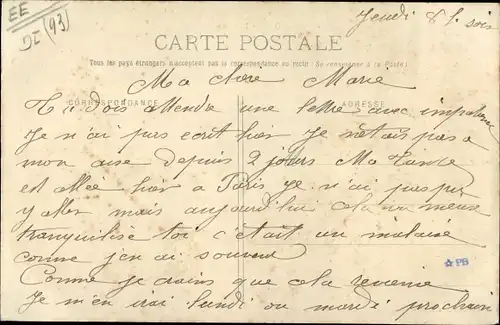 EE
DI (93)
Jeudi 8 h soir
CARTE POSTALE
Tous les pays étrangers n'acceptent pas la correspondance au recto (Se renseigner à la Poste)
Ma chère Marie
CORRESPONDANCE
ADRESSE
Tu dois attendre une lettre avec impatience
Je n'ai pas ecrit hier Je n'étais pas a
mon aise depuis 2 jours Ma tante
est allée hier a Paris je n'ai pas pu
y aller mais aujourd'hui cela va mieux
tranquilise toi c'etait un malaise
comme j'en ai souvent
☆PB
Comme je crains que cela revienne
Je m'en irai lundi ou mardi prochain